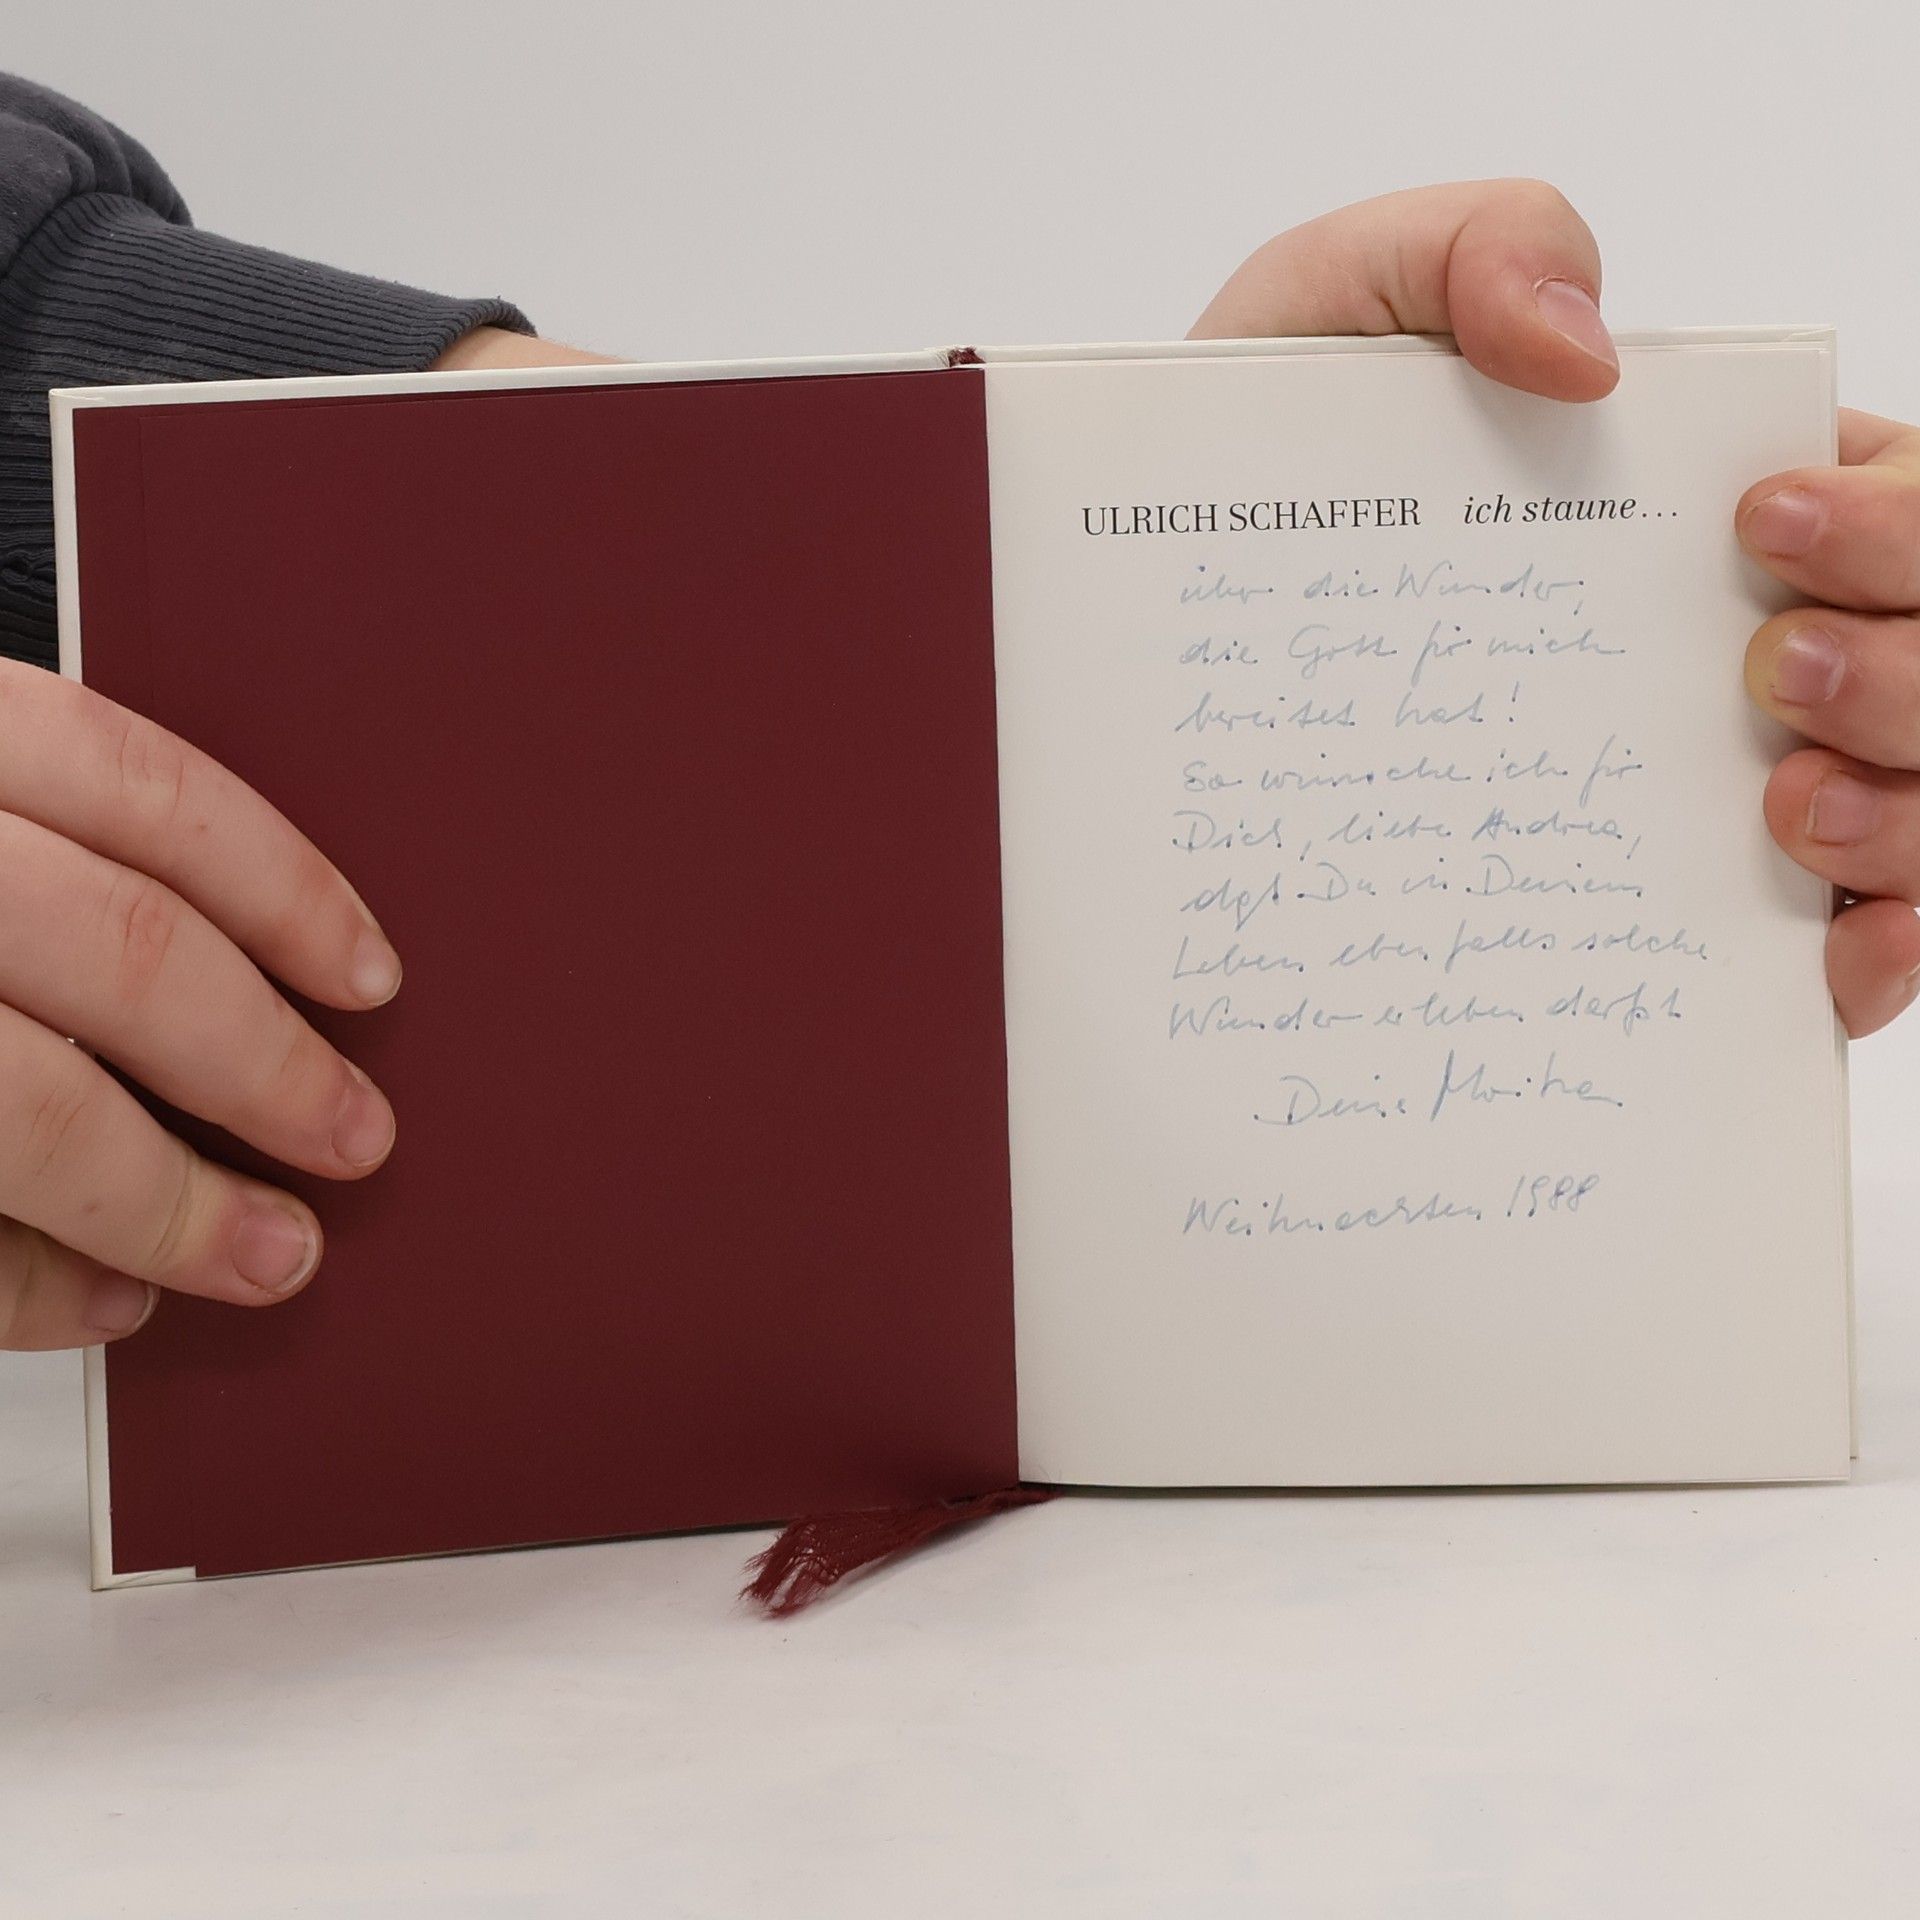 ULRICH SCHAFFER ich staune...
über die Wunder,
die Gott für mich
bereitet hat!
So wünsche ich für
Dich, liebe Andrea,
dgl. Du in Deinem
Leben ebenfalls solche
Wunder erleben darfst
Deine
Weihnachten 1988